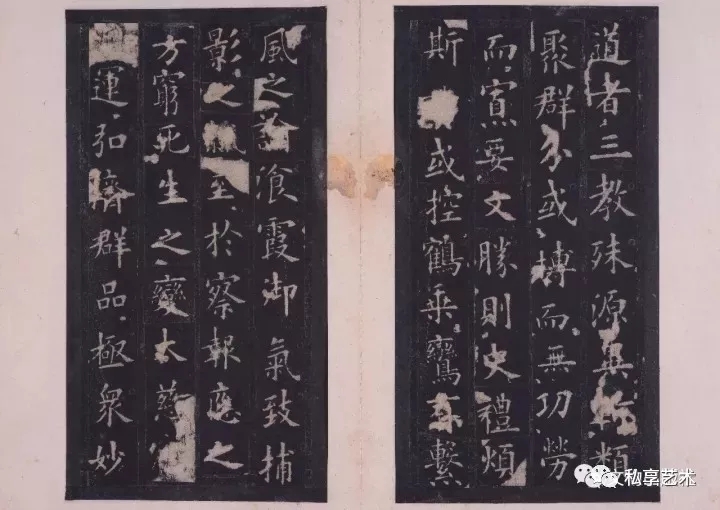 道者三教殊源異軫類
聚群分或博而無功勞
而寡要文勝則史禮煩
斯或控鶴乘鸞有繫
風之飡霞御氣致捕
影之至於察報應之
方窮死生之變大慈
運弘濟群品極衆妙
文私享艺术